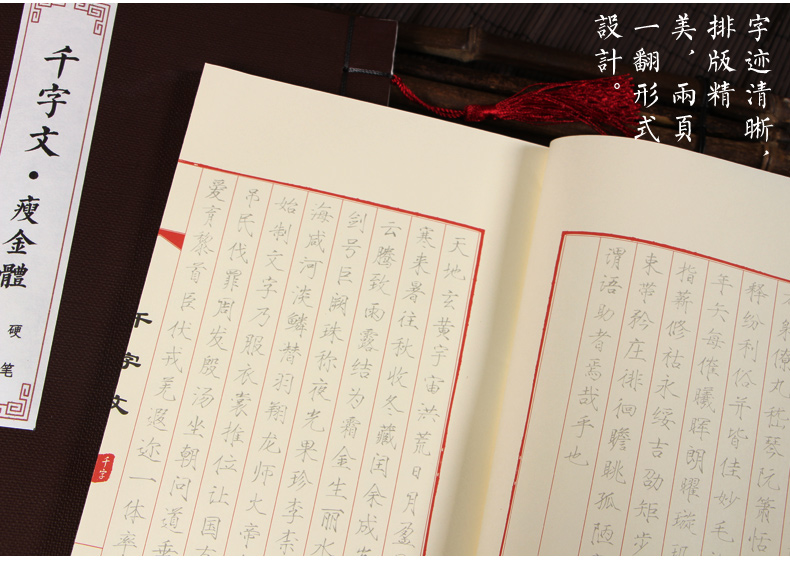 字迹清晰，
排版精
美，兩頁
一翻形式
設計。
千字文·瘦金體
硬笔
射僚丸嵇琴阮箫恬
释纷利俗并皆佳妙毛
年矢每催曦晖朗曜璇玑
指薪修祜永绥吉劭矩步
束带矜庄徘徊瞻眺孤陋
谓语助者焉哉乎也
天地玄黄宇宙洪荒日月盈
寒来暑往秋收冬藏闰余成岁
云腾致雨露结为霜金生丽水
剑号巨阙珠称夜光果珍李柰
海咸河淡鳞潜羽翔龙师火帝
始制文字乃服衣裳推位让国有
吊民伐罪周发殷汤坐朝问道垂
爱育黎首臣伏戎羌遐迩一体率
千字文
千字